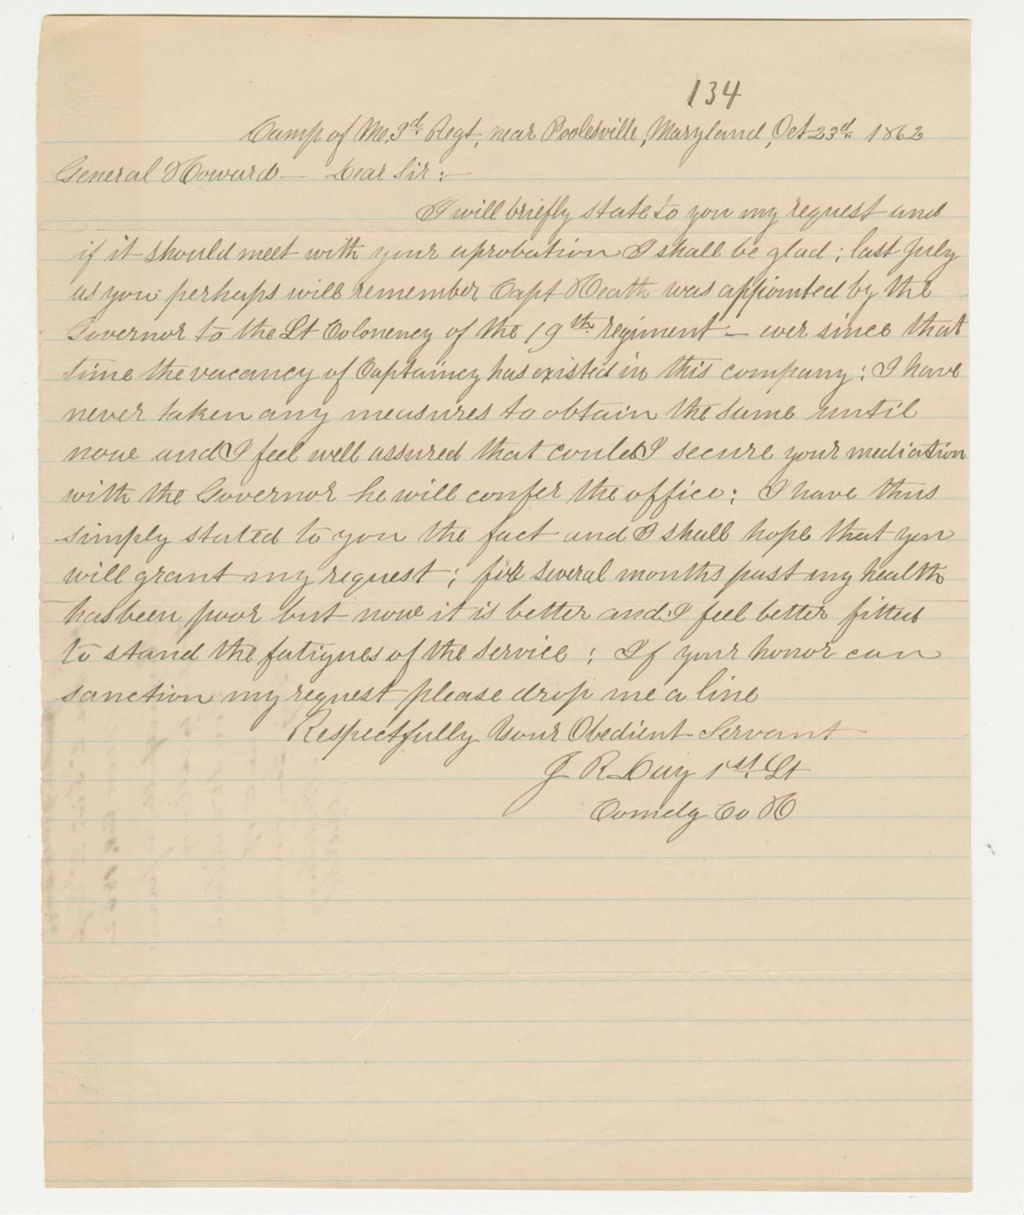 134
Camp of Me. 3d Regt, near Poolesville, Maryland, Oct 23d. 1862
General Howard — Dear Sir: —
I will briefly state to you my request and
if it should meet with your aprobation I shall be glad; last July
as you perhaps will remember Capt Heath was appointed by the
Governor to the Lt Colonency of the 19th regiment — ever since that
time the vacancy of Captaincy has existed in this company: I have
never taken any measures to obtain the same until
now and I feel well assured that could I secure your mediation
with the Governor he will confer the office; I have thus
simply stated to you the fact and I shall hope that you
will grant my request; for several months past my health
has been poor but now it is better and I feel better fitted
to stand the fatigues of the service; If your honor can
sanction my request please drop me a line
Respectfully Your Obedient Servant
J R Day 1st. Lt
Comdg Co H